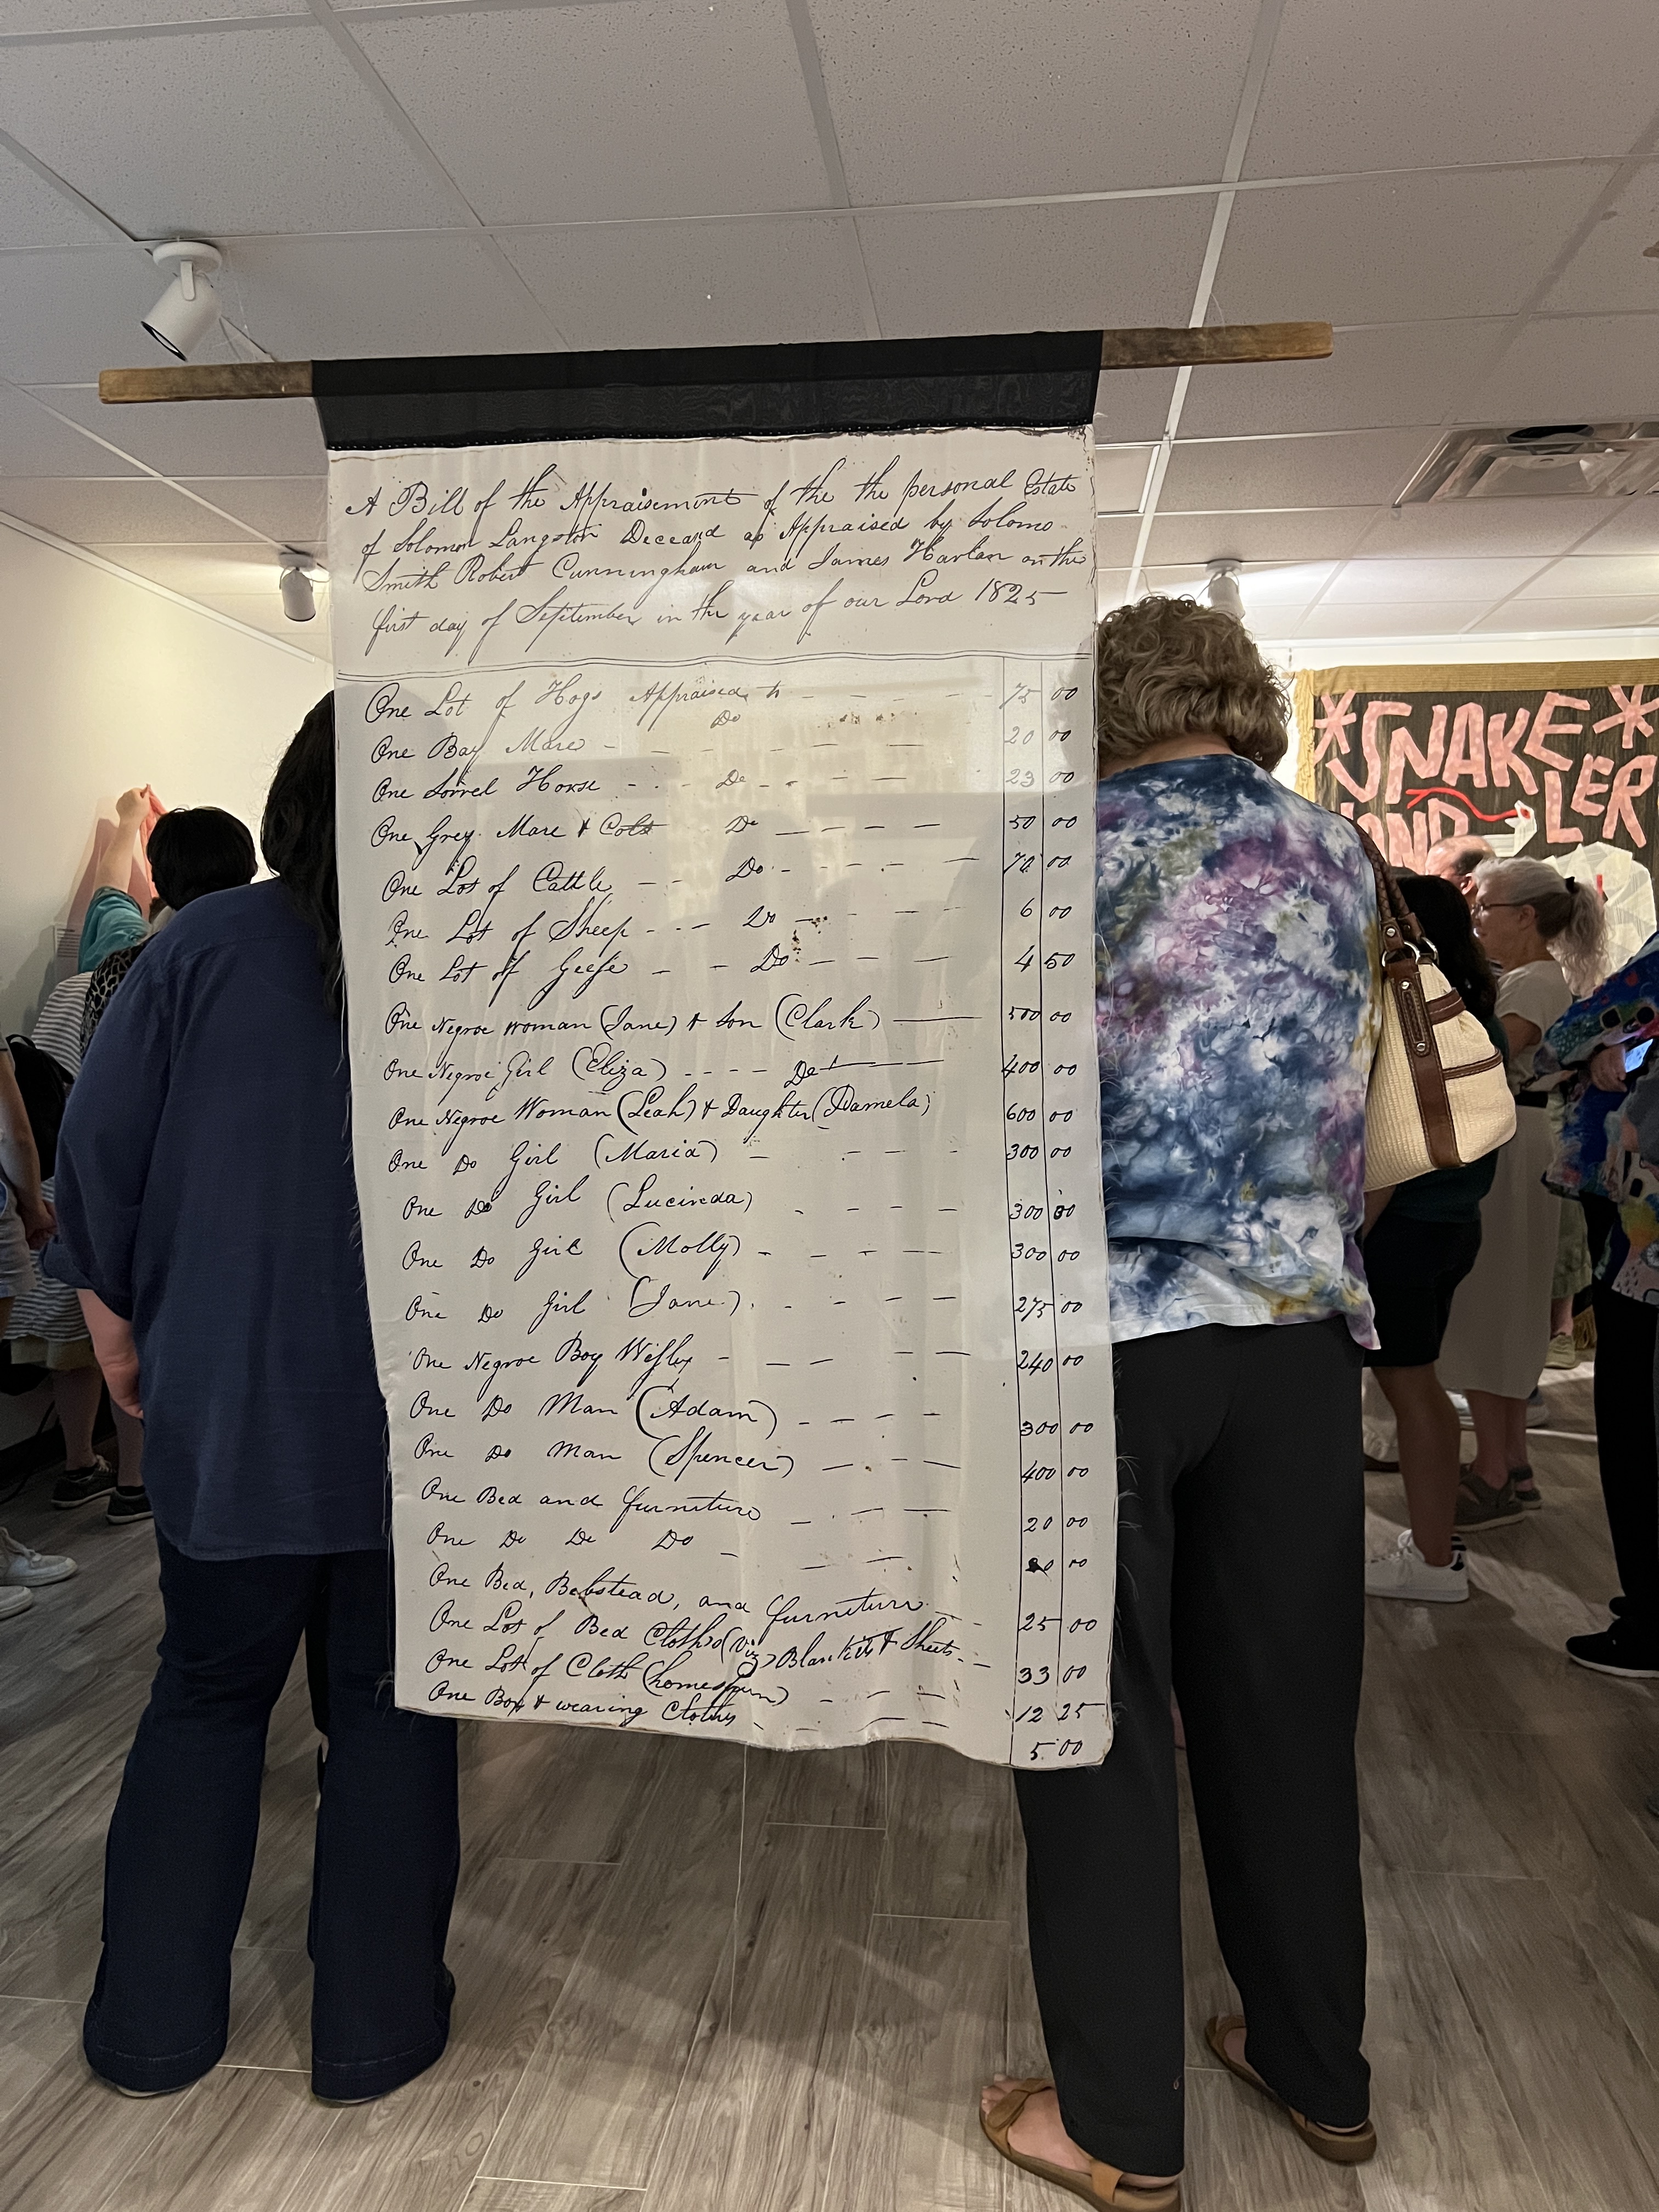 A Bill of the Appraisement of the the personal Estate
of Solomon Langston Deceasd as Appraised by Solomo
Smith Robert Cunningham and James Harlan on the
first day of September in the year of our Lord 1825
One Lot of Hogs Appraised to 75 00
One Bay Mare Do 20 00
One Sorrel Horse Do 23 00
One Grey Mare & Colt Do 50 00
One Lot of Cattle Do 70 00
One Lot of Sheep Do 6 00
One Lot of Geese Do 4 50
One Negroe woman (Jane) & Son (Clark) 500 00
One Negroe Girl (Eliza) Do 400 00
One Negroe Woman (Leah) & Daughter (Pamela) 600 00
One Do Girl (Maria) 300 00
One Do Girl (Lucinda) 300 00
One Do Girl (Molly) 300 00
One Do Girl (Jane) 275 00
One Negroe Boy Wesley 240 00
One Do Man (Adam) 300 00
One Do Man (Spencer) 400 00
One Bed and furniture 20 00
One Do Do Do 00
One Bed, Bebstead, and furniture 25 00
One Lot of Bed Cloths (Viz) Blankets & Sheets 33 00
One Lot of Cloth (homespun) 12 25
One Box & wearing Cloths 5 00
*SNAKE*
LER